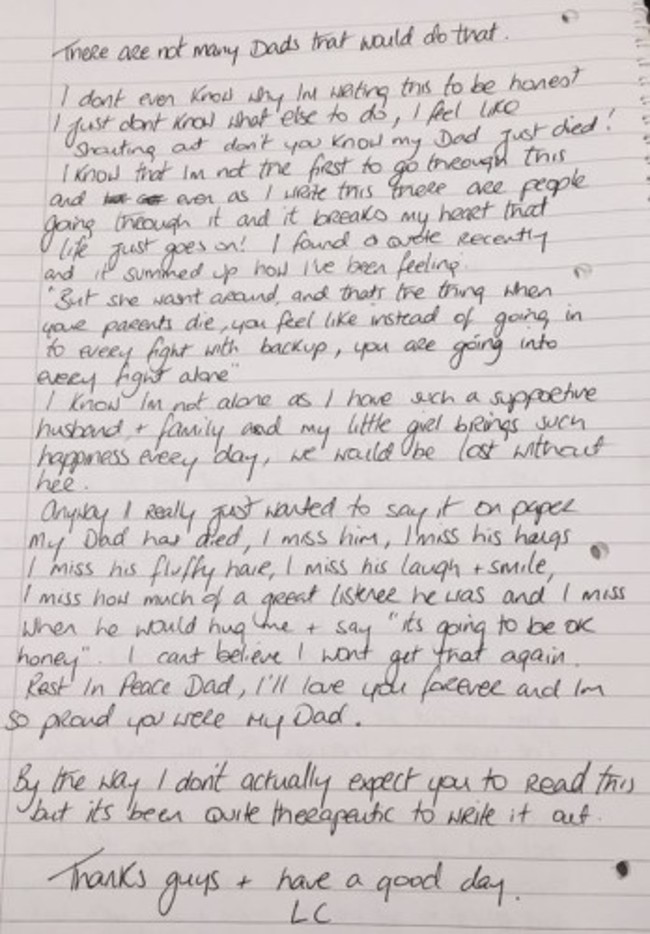 There are not many Dads that would do that.
I dont even know why Im writing this to be honest
I just dont know what else to do, I feel like
shouting out don't you know my Dad just died!
I know that Im not the first to go through this
and even as I write this there are people
going through it and it breaks my heart that
life just goes on! I found a quote recently
and it summed up how I've been feeling.
"But she wasnt around, and thats the thing when
your parents die, you feel like instead of going in
to every fight with backup, you are going into
every fight alone"
I know Im not alone as I have such a supportive
husband + family and my little girl brings such
happiness every day, we would be lost without
her.
Anyway I really just wanted to say it on paper
my Dad has died, I miss him, I miss his hugs
I miss his fluffy hair, I miss his laugh + smile,
I miss how much of a great listener he was and I miss
when he would hug me + say "its going to be ok
honey". I cant believe I wont get that again.
Rest In Peace Dad, I'll love you forever and Im
so proud you were my Dad.
By the way I don't actually expect you to read this
but its been quite therapeutic to write it out.
Thanks guys + have a good day.
LC